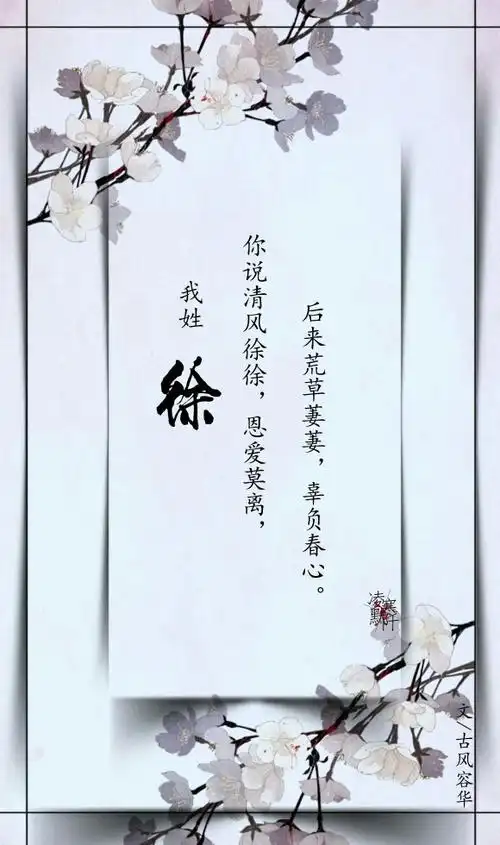 我姓
徐
你说清风徐徐，恩爱莫离，
后来荒草萋萋，辜负春心。
文/古风容华